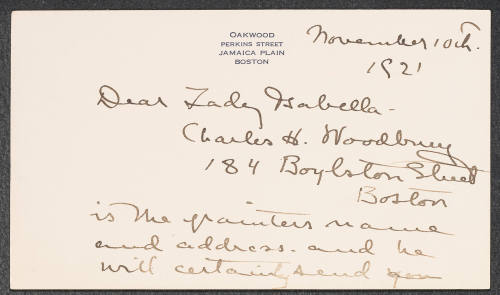 OAKWOOD
PERKINS STREET
JAMAICA PLAIN
BOSTON
November 10th.
1921
Dear Lady Isabella-
Charles H. Woodbury
184 Boylston Street
Boston
is the painters name
and address. and he
will certainly send you